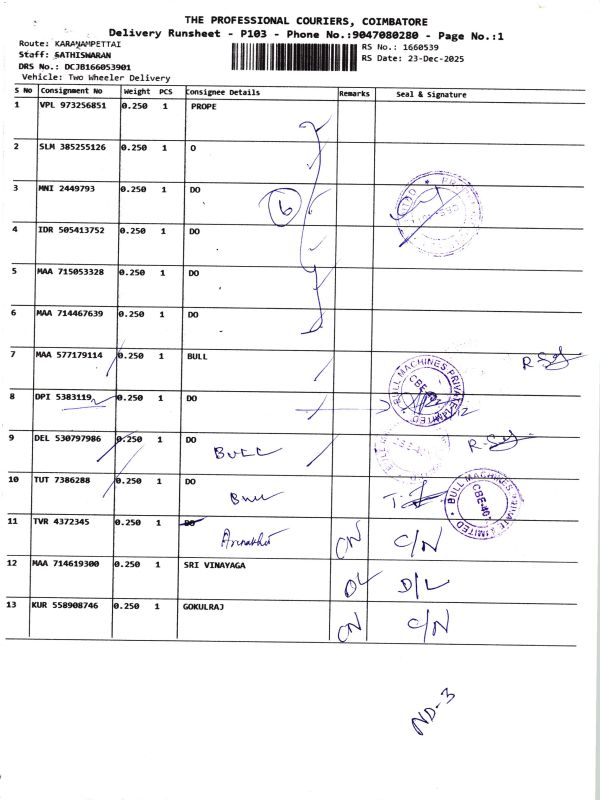 THE PROFESSIONAL COURIERS, COIMBATORE
Delivery Runsheet - P103 - Phone No.:9047080280 - Page No.:1
Route: KARANAMPETTAI
Staff: SATHISWARAN
DRS No.: DCJB166053901
Vehicle: Two Wheeler Delivery
RS No.: 1660539
RS Date: 23-Dec-2025
S No Consignment No Weight PCS Consignee Details Remarks Seal & Signature
1 VPL 973256851 0.250 1 PROPE
2 SLM 385255126 0.250 1 O
3 MNI 2449793 0.250 1 DO
6
4 IDR 505413752 0.250 1 DO
5 MAA 715053328 0.250 1 DO
6 MAA 714467639 0.250 1 DO
7 MAA 577179114 0.250 1 BULL
BULL MACHINES PRIVATE LIMITED
8 DPI 5383119 0.250 1 DO
9 DEL 530797986 0.250 1 DO
BULL
10 TUT 7386288 0.250 1 DO
Bull
BULL MACHINES PRIVATE LIMITED
CBE-402
11 TVR 4372345 0.250 1 DO
CN C/N
12 MAA 714619300 0.250 1 SRI VINAYAGA
DL D/L
13 KUR 558908746 0.250 1 GOKULRAJ
CN C/N
ND-3